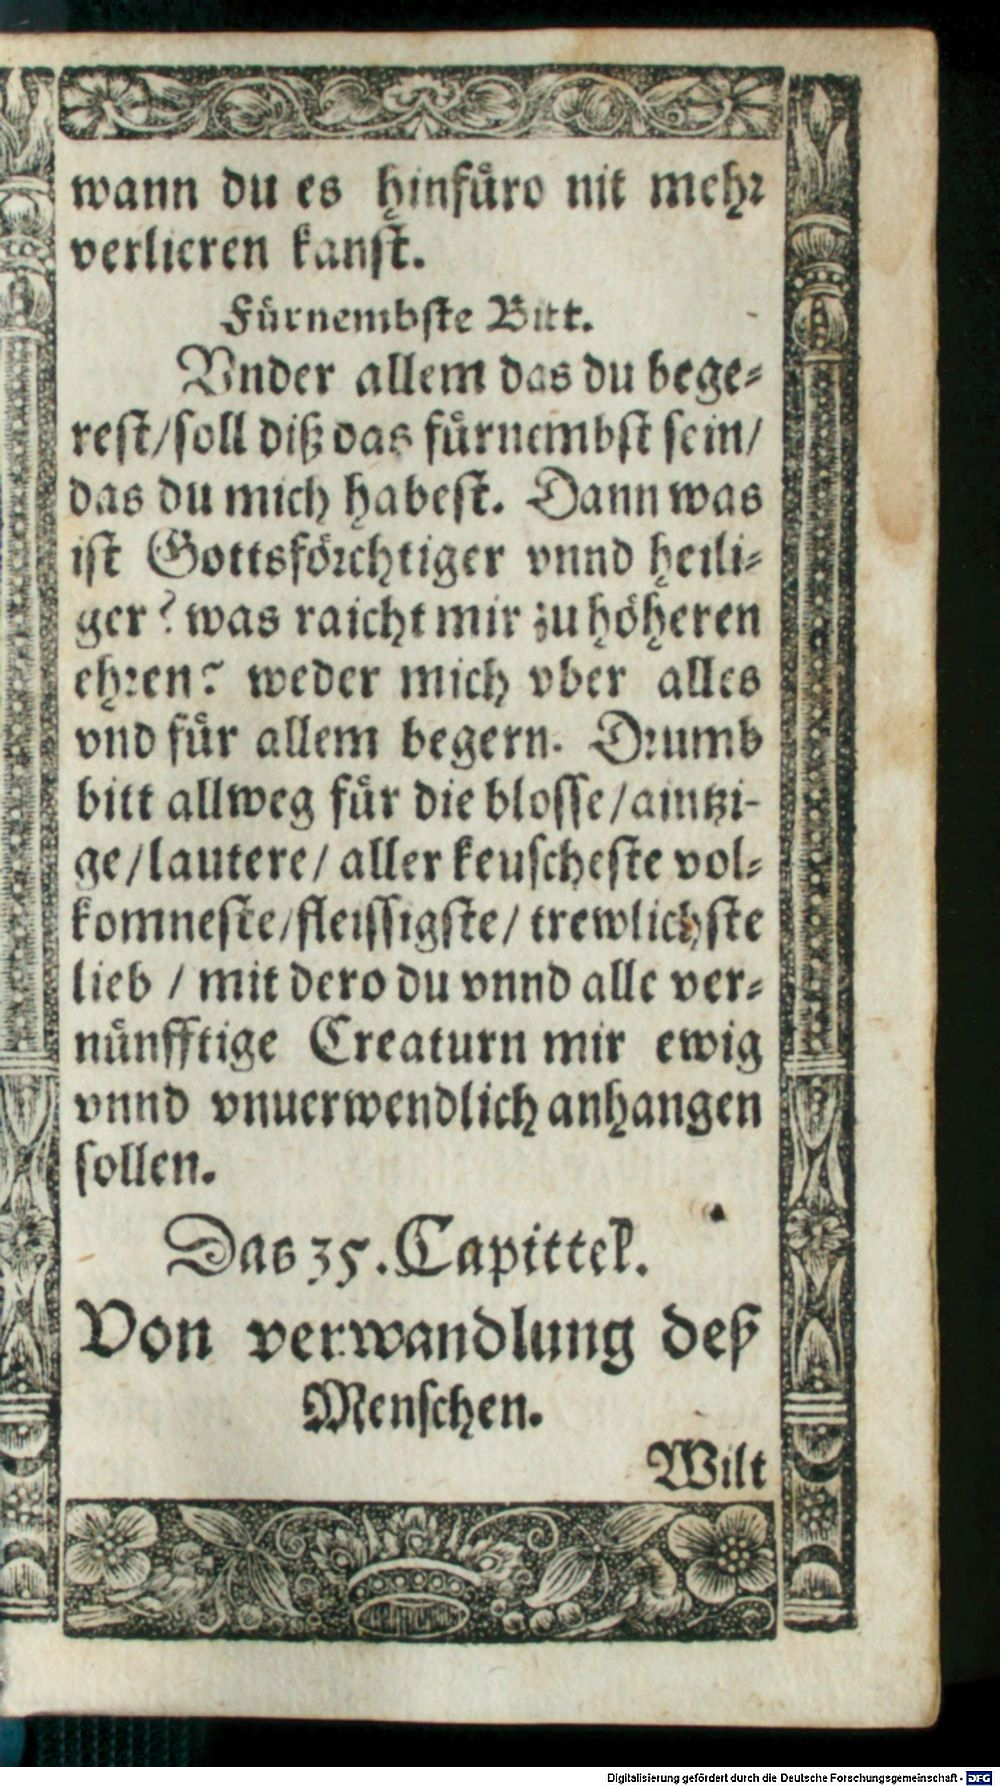 wann du es hinfüro nit mehr
verlieren kanst.
Fürnembste Bitt.
Vnder allem das du bege-
rest/soll diß das fürnembst sein/
das du mich habest. Dann was
ist Gottsförchtiger vnnd heili-
ger? was raicht mir zu höheren
ehren? weder mich vber alles
vnd für allem begern. Drumb
bitt allweg für die blosse/aintzi-
ge/lautere/ aller keuscheste vol-
komneste/fleissigste/ trewlichste
lieb / mit dero du vnnd alle ver-
nünfftige Creaturn mir ewig
vnnd vnuerwendlich anhangen
sollen.
Das 35. Capittel.
Von verwandlung deß
Menschen.
Wilt
Digitalisierung gefördert durch die Deutsche Forschungsgemeinschaft - DFG